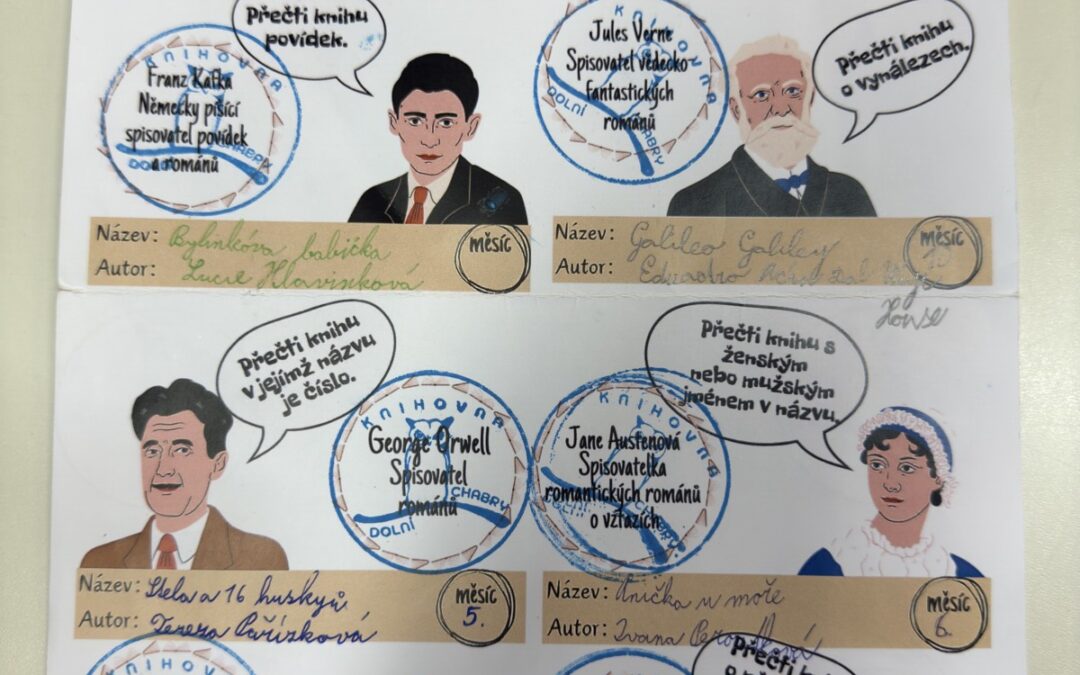 Přečti knihu
povídek.
KNIHOVNA
DOLNÍ CHABRY
Franz Kafka
Německy píšící
spisovatel povídek
a románů
KNIHOVNA
DOLNÍ CHABRY
Jules Verne
Spisovatel vědecko
fantastických
románů
Přečti knihu
o vynálezech.
Název: Bylinkóva babička
Autor: Lucie Hlavinková
měsíc
Název: Galileo Galiley
Autor: Eduardo
House
měsíc
Přečti knihu
v jejímž názvu
je číslo.
KNIHOVNA
DOLNÍ CHABRY
George Orwell
Spisovatel
románů
Přečti knihu s
ženským
nebo mužským
jménem v názvu.
KNIHOVNA
DOLNÍ CHABRY
Jane Austenová
Spisovatelka
romantických románů
o vztazích
Název: Stela a 16 huskyů
Autor: Tereza Pařízková
měsíc
5.
Název: Anička u moře
Autor: Ivana
měsíc
6.
KNIHOVNA
KNIHOVNA
Přečti